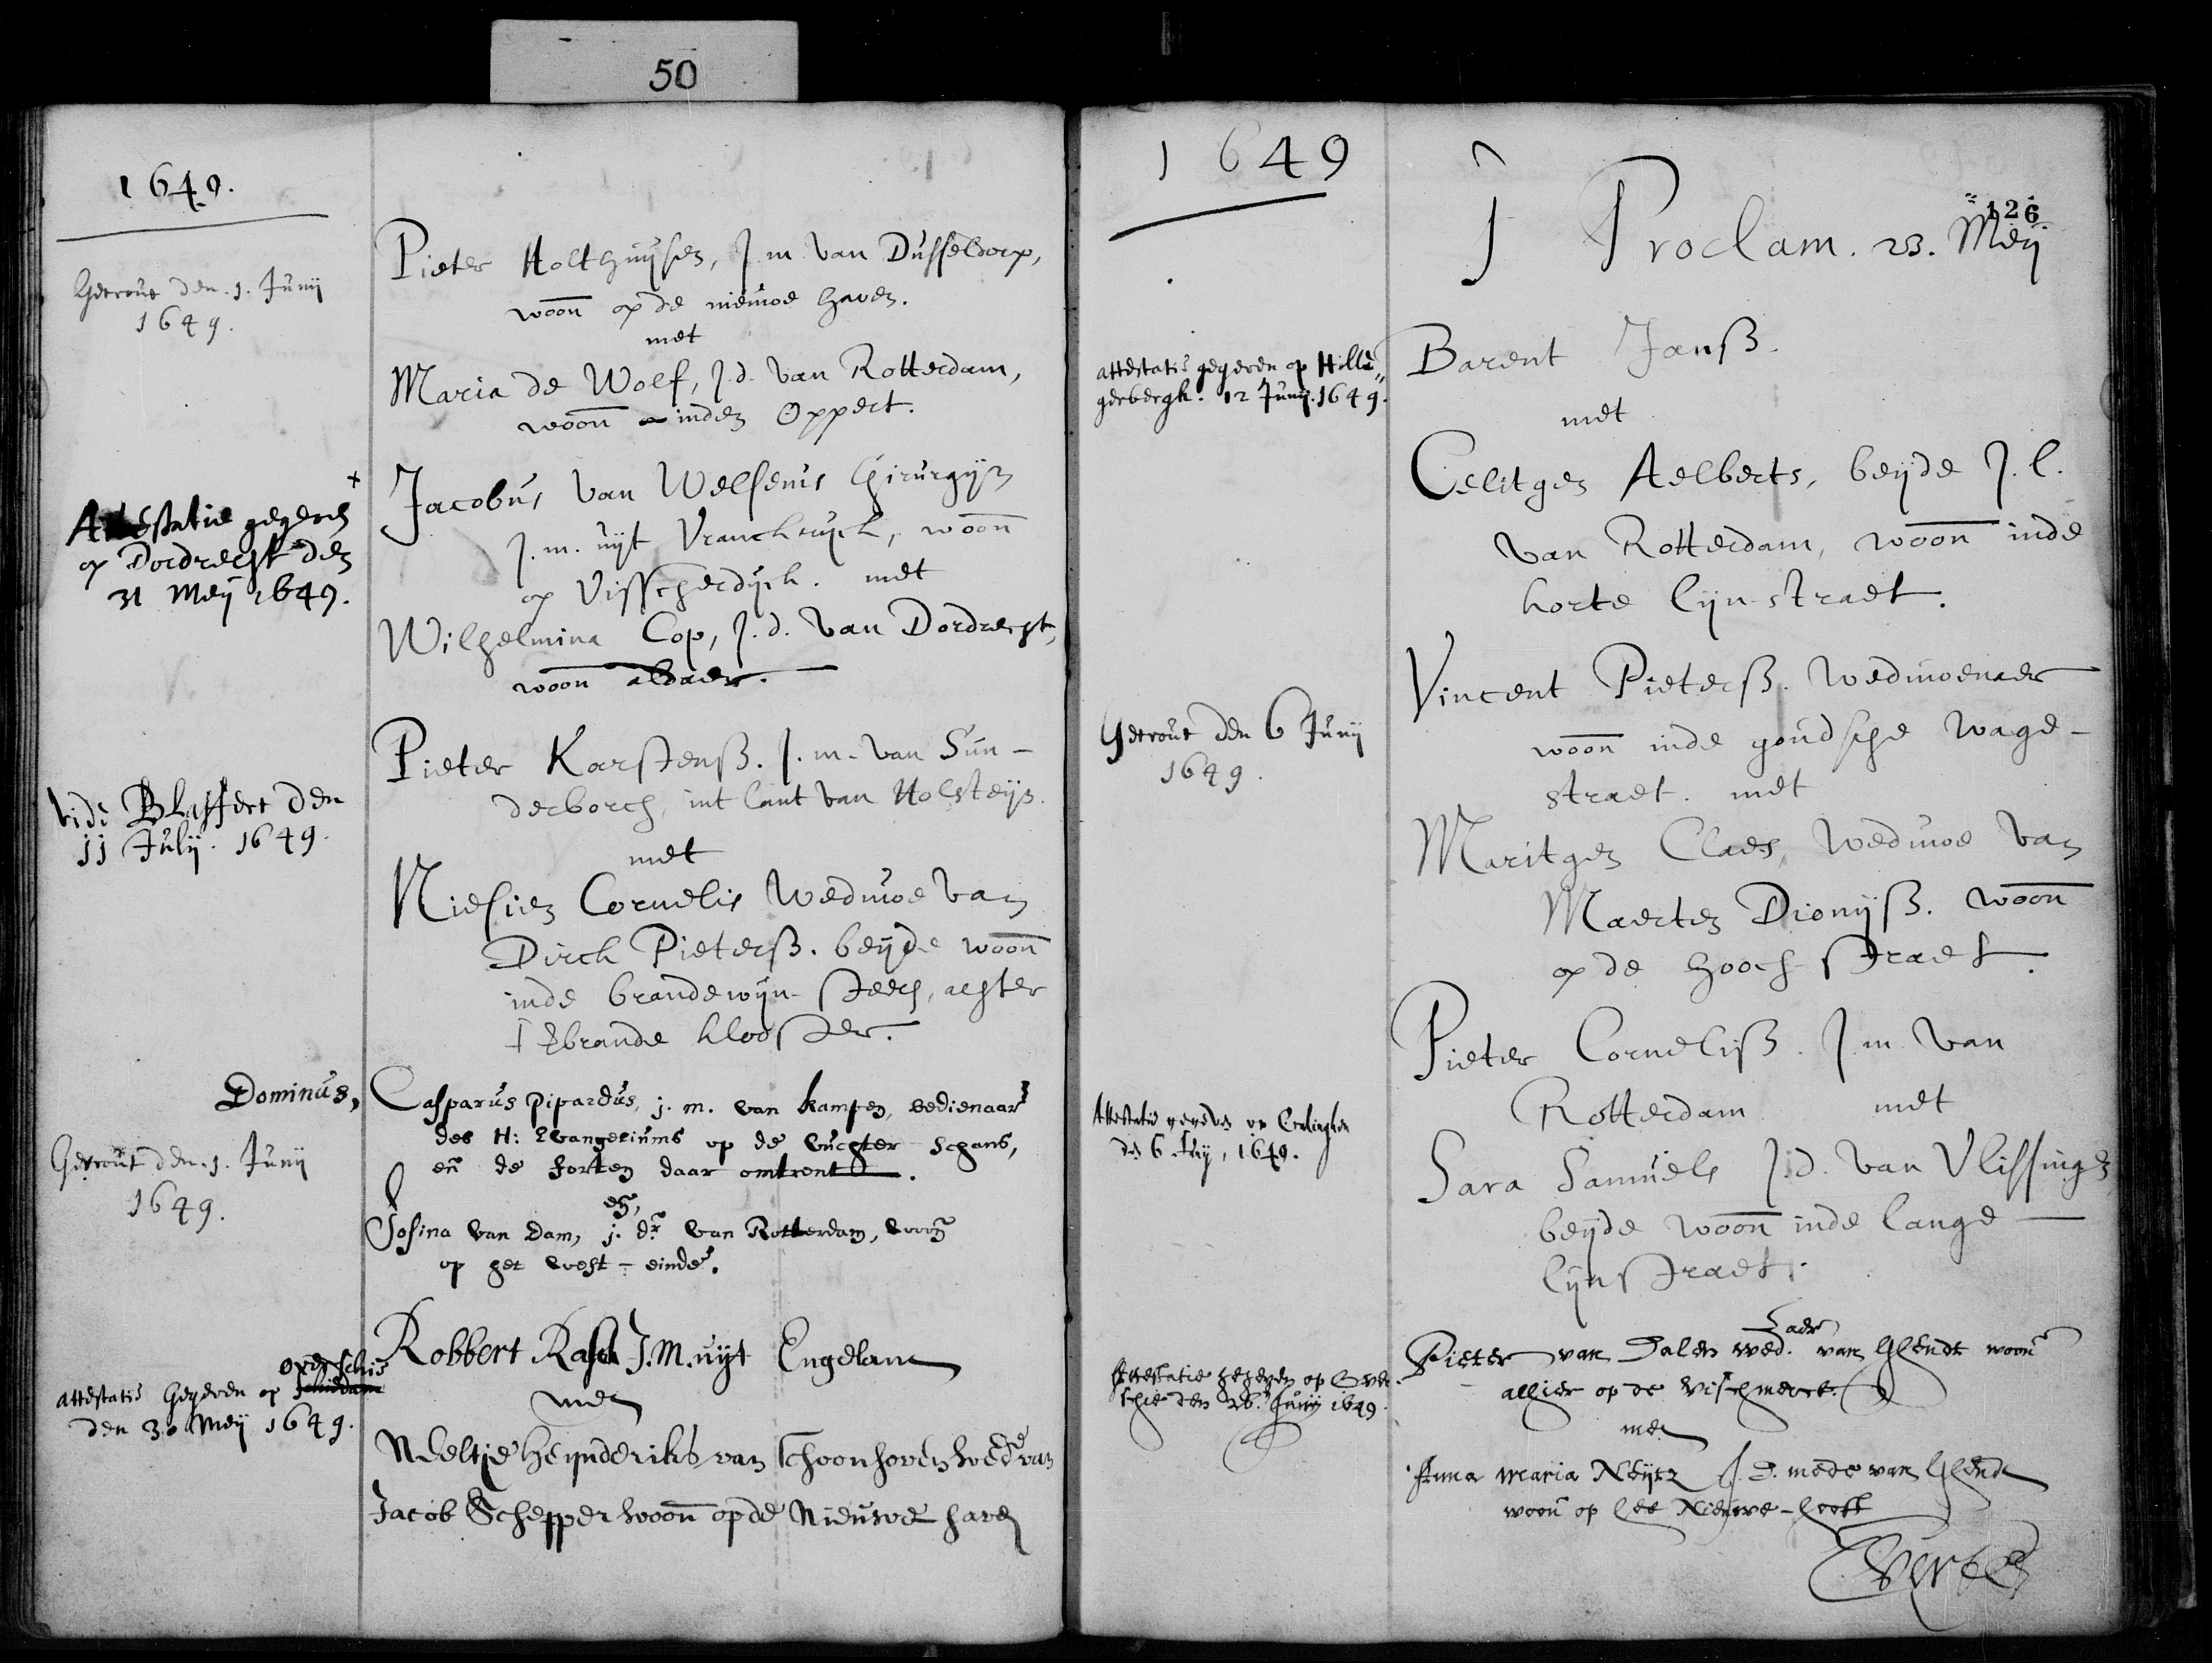 50
1649.
Getrout den. 1. Junij
1649.
Pieter Holthuijsen, J. m. van Dusseldorp,
woon op de nieuwe haven.
met
Maria de Wolf, J. d. van Rotterdam,
woon inden Oppert.
Attestatie gegeven
op Dordrecht den
31 Meij 1649.
Jacobus van Welsenis Chirurgijn
J. m. uijt Vranckrijck, woon
op Visscherdijck. met
Wilhelmina Cop, J. d. van Dordrecht,
woon aldaer.
vide Blaffert den
11 Julij. 1649.
Pieter Karstenß. J. m. van Sun-
derborch, int lant van Holsteijn.
met
Niesien Cornelis Weduwe van
Dirck Pieterß. beijde woon
inde brandewijn-steech, achter
t Ebrande klooster.
Dominus,
Getrout den. 1. Junij
1649.
Casparus Pipardus, j. m. van Kampen, bedienaar
des H: Evangeliums op de Vuchter schans,
en de forten daar omtrent.
en,
Josina van Dam, j. dr. van Rotterdam, woon
op het West-einde.
overschie
attestatie gegeven op Schiedam
den 30 Meij 1649.
Robbert Rasch J. M. uijt Engelant
met
Neeltje Heijnderiks van Schoonhoven wede van
Jacob Schepper woon op de Nieuwe haven
1649
126
J Proclam. 23. Meij
attestatie gegeven op Hille
gerbergh. 12 Junij. 1649.
Barent Janß.
met
Celitgen Aelberts, beijde J. l.
van Rotterdam, woon inde
korte lijn-straet.
Getrout den 6 Junij
1649.
Vincent Pieterß. Weduwenaer
woon inde goudsche wage-
straet. met
Maritgen Claes, Weduwe van
Maerten Dionijß. woon
op de hooch-straet.
Attestatie gegeven op
den 6 Junij, 1649.
Pieter Corneliß. J. m. van
Rotterdam met
Sara Samuels J. d. van Vlissingen
beijde woon inde lange
lijnstraet.
Attestatie gegeven op Over
schie den 26. Junij 1649.
Pieter van Dalen wed. aer van Ghendt woon
alhier op de vischmerct.
met
Anna Maria J. D. mede van Ghendt
woon op het Nieuwe-hooft